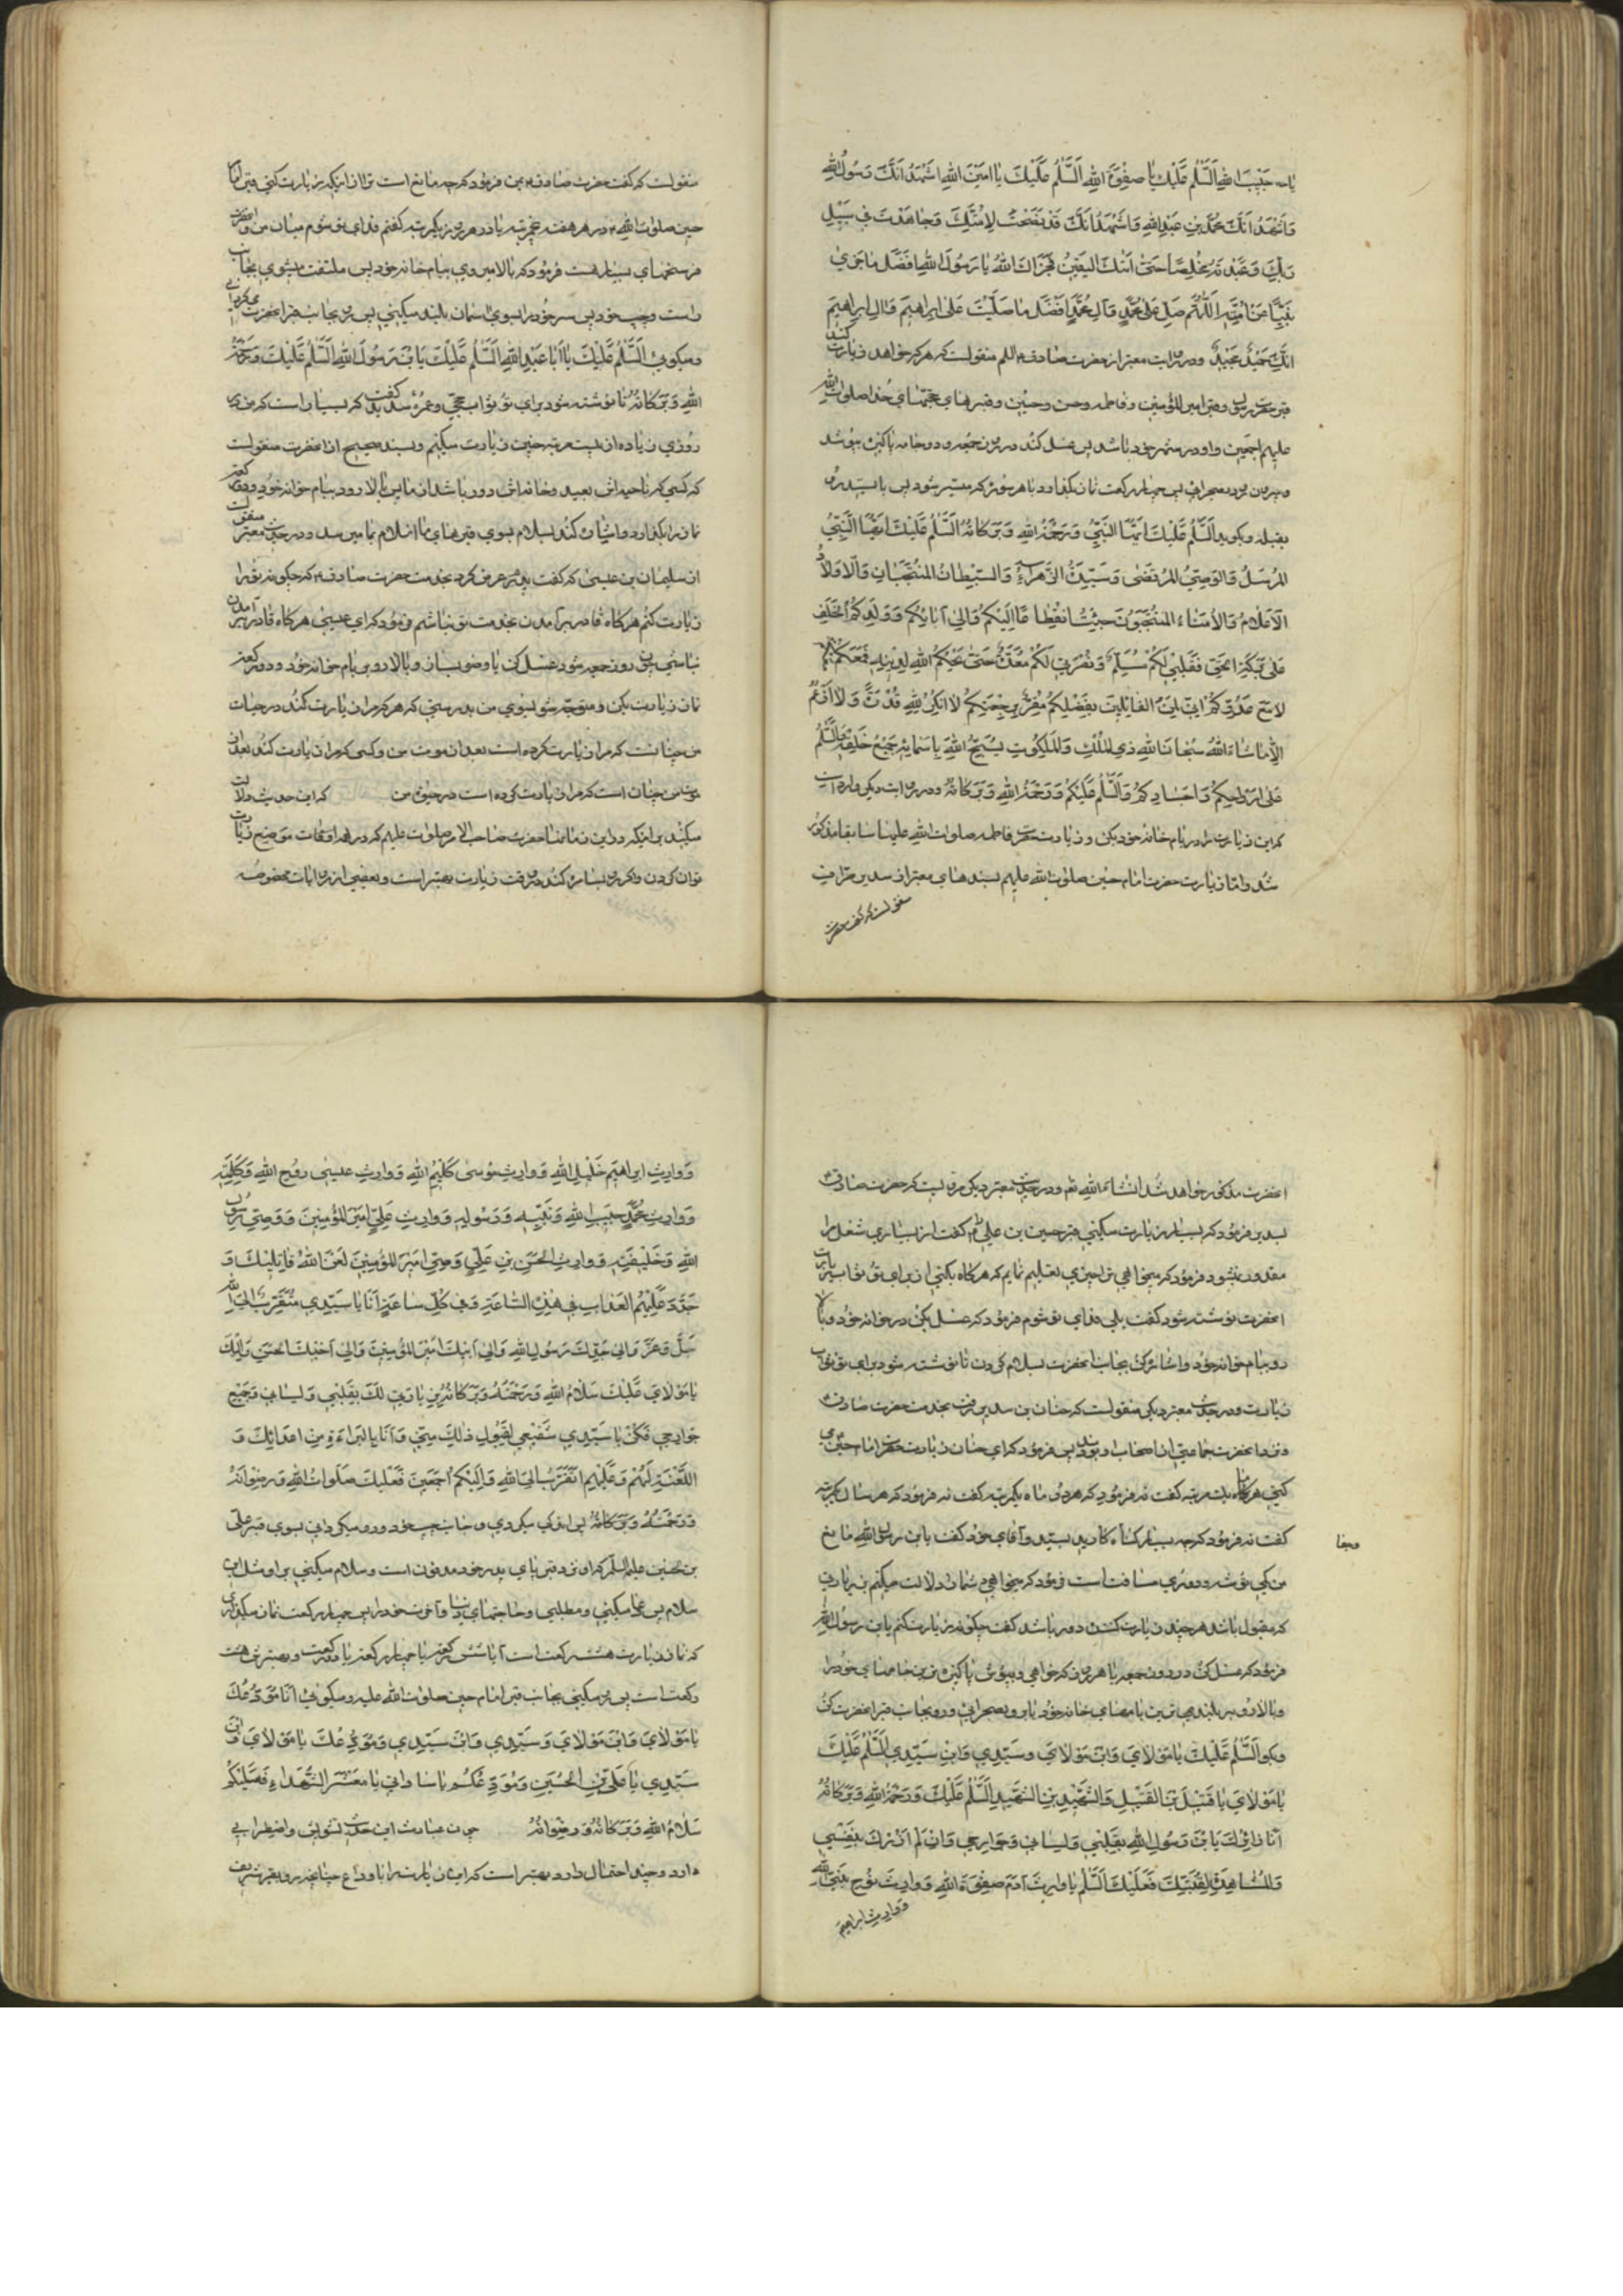 یا حبیب الله اَلسَّلٰمُ عَلَیْكَ یٰا صِفْوَةَ اللهِ اَلسَّلٰمُ عَلَیْكَ یٰا اَمینَ اللهِ اَشْهَدُ اَنَّكَ رَسُولُ اللهِ
وَاَشْهَدُ اَنَّكَ مُحَمَّدُ بْنُ عَبْدِ اللهِ وَاَشْهَدُ اَنَّكَ قَدْ نَصَحْتَ لِاُمَّتِكَ وَجٰاهَدْتَ فی سَبیلِ
رَبِّكَ وَعَبَدْتَهُ مُخْلِصًا حَتّٰی اَتٰیكَ الیَقینُ فَجَزٰاكَ اللهُ یٰا رَسُولَ اللهِ اَفْضَلَ مٰا جَزٰی
نَبِیًّا عَنْ اُمَّتِهِ اَللّٰهُمَّ صَلِّ عَلٰی مُحَمَّدٍ وَآلِ مُحَمَّدٍ اَفْضَلَ مٰا صَلَّیْتَ عَلٰی اِبرٰاهیمَ وَآلِ اِبرٰاهیمَ
اِنَّكَ حَمیدٌ مَجیدٌ ودر روایت معتبر از حضرت صادق منقولست که هرکه خواهد زیارت کند
قبر حضرت رسول وقبر امیر المؤمنین وفاطمه وحسن وحسین وقبرهای حجّتهای خدا صلوات الله
علیهم اجمعین واو در شهر خود باشد پس غسل کند در روز جمعه ودو جامه پاکیزه بپوشد
وبیرون رود بصحرائی پس چهار رکعت نماز بکذارد با هر سوره که میسّر شود پس بایستد رو
بقبله وبکوید اَلسَّلٰمُ عَلَیْكَ اَیُّهَا النَّبِیُّ وَرَحْمَةُ اللهِ وَبَرَكٰاتُهُ اَلسَّلٰمُ عَلَیْكَ اَیُّهَا النَّبِیُّ
المُرْسَلُ وَالوَصِیُّ المُرْتَضٰی وَسَیِّدَةُ الزَّهْرٰاءُ وَالسِّبْطٰانُ المُنْتَجَبٰانِ وَالْاَوْلٰادُ
الْاَعْلٰامُ وَالْاُمَنٰاءُ المُنْتَجَبُونَ جِئْتُ انْقِطٰاعًا اِلَیْكُمْ وَاِلٰی آبٰائِكُمْ وَوَلَدِكُمُ الْخَلَفِ
عَلٰی بَرَكَةِ الحَقِّ فَقَلْبی لَكُمْ مُسَلِّمٌ وَنُصْرَتی لَكُمْ مُعَدَّةٌ حَتّٰی یَحْكُمَ اللهُ لِدینِهِ فَمَعَكُمْ مَعَكُمْ
لٰا مَعَ عَدُوِّكُمْ اِنّی لَمِنَ القٰائِلینَ بِفَضْلِكُمْ مُقِرٌّ بِرَجْعَتِكُمْ لٰا اُنْكِرُ لِلّٰهِ قُدْرَةً وَلٰا اَزْعَمُ
اِلّٰا مٰا شٰاءَ اللهُ سُبْحٰانَ اللهِ ذِی المُلْكِ وَالمَلَكُوتِ یُسَبِّحُ اللهَ بِاَسْمٰائِهِ جَمیعُ خَلْقِهِ وَالسَّلٰمُ
عَلٰی اَرْوٰاحِكُمْ وَاَجْسٰادِكُمْ وَالسَّلٰمُ عَلَیْكُمْ وَرَحْمَةُ اللهِ وَبَرَكٰاتُهُ ودر روایت دیکر وارداست
که این زیارت را در بام خانه خود بکن وزیارت حضرت فاطمه صلوات الله علیها سابقا مذکور
شد وامّا زیارت حضرت امام حسین صلوات الله علیهم بسندهای معتبر از سدیر صرّاف
منقولست که گفت حضرت
منقولست که کفت حضرت صادق بمن فرمود که چه مانع است ترا از اینکه زیارت کنی قبر امام
حسین صلوات الله در هر هفته پنج مرتبه یا در هر روز یکمرتبه کفتم فدای تو شوم میان من وآنحضرت
فرسخهای بسیار هست فرمود که بالا میروی ببام خانه خود پس ملتفت میشوی بجانب
راست وچپ خود پس سر خود را بسوی آسمان بلند میکنی پس رو بجانب قبر آنحضرت میکردانی
ومیکوئی اَلسَّلٰمُ عَلَیْكَ یٰا اَبٰا عَبْدِ اللهِ اَلسَّلٰمُ عَلَیْكَ یَابْنَ رَسُولِ اللهِ اَلسَّلٰمُ عَلَیْكَ وَرَحْمَةُ
اللهِ وَبَرَكٰاتُهُ تا نوشته شود برای تو ثواب حجّی وعمرهٔ سدیر کفت که بسیار است که من در
روزی زیاده از بیست مرتبه چنین زیارت میکنم وبسند صحیح از آنحضرت منقولست
که کسی که ناحیه اش بعید وخانه اش دور باشد از ما پس بالا رود ببام خوانه خود ودو رکعت
نماز را بکذارد واشاره کند بسلام بسوی قبرهای ما آن سلام بما میرسد ودر حدیث معتبر منقولست
از سلیمان بن عیسی که کفت پدرم عرض کرد بخدمت حضرت صادق که چکونه ترا
زیارت کنم هرکاه قادر بر آمدن بخدمت تو نباشم فرمود که ای عیسی هرکاه قادر بر آمدن
نباشی چون روز جمعه شود غسل کن یا وضو بساز وبالا رو بر بام خوانه خود ودو رکعت
نماز زیارت بکن ومتوجّه شو بسوی من بدرستی که هرکه مرا زیارت کند در حیات
من چنانست که مرا زیارت کرده است بعد از موت من وکسی که مرا زیارت کند بعد از
موت من چنان است که مرا زیارت کرده است در حیوة من که این حدیث دلالت
میکند بر اینکه در این زمانها حضرت صاحب الامر صلوات علیهم که در همه اوقات موضع زیارت
توان کردن واکر رو بستاره کند در وقت زیارت بهتر است وبعضی از روایات مخصوصه
آنحضرت مذکور خواهد شد انشاء الله تع ودر حدیث معتبر دیکر مرویست که حضرت صادق
بسدیر فرمود که بسیار زیارت میکنی قبر حسین بن علی را کفت از بسیاری شغل مرا
مقدور نمیشود فرمود که میخواهی ترا چیزی تعلیم نمایم که هرکاه بکنی آنرا برای تو ثواب زیارت
آنحضرت نوشته شود کفت بلی فدای تو شوم فرمود که غسل بکن در خوانه خود وبالا
رو ببام خوانه خود واشاره کن بجانب آنحضرت بسلام کردن تا نوشته شود برای تو ثواب
زیارت ودر حدیث معتبر دیکر منقولست که حنان بن سدیر رفت بخدمت حضرت صادق
ونزد آنحضرت جماعتی از اصحاب او بودند پس فرمود که ای حنان زیارت حضرت امام حسین می
کنی هر ماه یك مرتبه کفت نه فرمود که هر دو ماه یکمرتبه کفت نه فرمود که هر سال یکمرتبه
کفت نه فرمود که چه بسیار جفا کارید بسیّد وآقای خود کفت یابن رسول الله مانع
وجفا
من کمی توشه ودوری مسافت است فرمود که میخواهی شما را دلالت میکنم بزیارتی
که مقبول باشد هر چند زیارت کننده دور باشد کفت چکونه زیارت کنم یابن رسول الله
فرمود که غسل کن در روز جمعه یا هر روز که خواهی وبپوش پاکیزه ترین جامهای خود را
وبالا رو بر بلندترین بامهای خانه خود یا برو بصحرائی ورو بجانب قبر آنحضرت کن
وبکو اَلسَّلٰمُ عَلَیْكَ یٰا مَوْلٰایَ وَابْنَ مَوْلٰایَ وسَیِّدی وَابْنَ سَیِّدی اَلسَّلٰمُ عَلَیْكَ
یٰا مَوْلٰایَ یٰا قَتیلَ بْنَ القَتیلِ وَالشَّهیدِ بْنِ الشَّهیدِ اَلسَّلٰمُ عَلَیْكَ وَرَحْمَةُ اللهِ وَبَرَكٰاتُهُ
اَنَا زٰائِرُكَ یَابْنَ رَسُولِ اللهِ بِقَلْبی وَلِسٰانی وَجَوٰارِحی وَاِنْ لَمْ اَزُرْكَ بِنَفْسی
وَالمُشٰاهَدَةِ لِقُبَّتِكَ فَعَلَیْكَ السَّلٰمُ یٰا وٰارِثَ آدَمَ صِفْوَةِ اللهِ وَوٰارِثَ نُوحٍ نَبِیِّ اللهِ
وَوارِثَ ابراهیمَ
وَوٰارِثَ اِبرٰاهیمَ خَلیلِ اللهِ وَوٰارِثَ مُوسٰی كَلیمِ اللهِ وَوٰارِثَ عیسٰی رُوحِ اللهِ وَكَلِمَتِهِ
وَوٰارِثَ مُحَمَّدٍ حَبیبِ اللهِ وَنَبِیِّهِ وَرَسُولِهِ وَوٰارِثَ عَلِیٍّ اَمیرِ المُؤْمِنینَ وَوَصِیِّ رَسُولِ
اللهِ وَخَلیفَتِهِ وَوٰارِثَ الحَسَنِ بْنِ عَلِیٍّ وَصِیِّ اَمیرِ المُؤْمِنینَ لَعَنَ اللهُ قٰاتِلیكَ وَ
جَدَّدَ عَلَیْهِمُ العَذٰابَ فی هٰذِهِ السّٰاعَةِ وَفی كُلِّ سٰاعَةٍ اَنَا یٰا سَیِّدی مُتَقَرِّبٌ اِلَی اللهِ
جَلَّ وَعَزَّ وَاِلٰی جَدِّكَ رَسُولِ اللهِ وَاِلٰی اَبیكَ اَمیرِ المُؤْمِنینَ وَاِلٰی اَخیكَ الحَسَنِ وَاِلَیْكَ
یٰا مَوْلٰایَ عَلَیْكَ سَلٰامُ اللهِ وَرَحْمَتُهُ وَبَرَكٰاتُهُ بِزِیٰارَتی لَكَ بِقَلْبی وَلِسٰانی وَجَمیعِ
جَوٰارِحی فَكُنْ یٰا سَیِّدی شَفیعی لِقَبُولِ ذٰلِكَ مِنّی وَاَنَا بِالبَرٰاءَةِ مِنْ اَعْدٰائِكَ وَ
اللَّعْنَةِ لَهُمْ وَعَلَیْهِمْ اَتَقَرَّبُ اِلَی اللهِ وَاِلَیْكُمْ اَجْمَعینَ فَعَلَیْكَ صَلَوٰاتُ اللهِ وَرِضْوٰانُهُ
وَرَحْمَتُهُ وَبَرَكٰاتُهُ پس اندکی میکردی بجانب چپ خود ورو میکردانی بسوی قبر علی
بن الحسین علیه السلم که او نزد قبر پای پدر خود مدفون است وسلام میکنی بر او مثل این
سلام پس دعا میکنی ومطلبی وحاجتهای دنیا وآخرت خود را پس چهار رکعت نماز میکذاری
که نماز زیارت هشت رکعت است آیا شش رکعت یا چهار رکعت یا دو رکعت وبهترش هشت
رکعت است پس رو میکنی بجانب قبر امام حسین صلوات الله علیه ومیکوئی اَنَا مُوَدِّعُكَ
یٰا مَوْلٰایَ وَابْنَ مَوْلٰایَ وَسَیِّدی وَابْنَ سَیِّدی وَمُوَدِّعُكَ یٰا مَوْلٰایَ وَابْنَ
سَیِّدی یٰا عَلِیَّ بْنَ الحُسَیْنِ وَمُوَدِّعُكُمْ یٰا سٰادٰاتی یٰا مَعْشَرَ الشُّهَدٰاءِ فَعَلَیْكُمْ
سَلٰامُ اللهِ وَبَرَكٰاتُهُ وَرِضْوٰانُهُ چون عبارت این حدیث تشویش واضطرابی
دارد وچند احتمال دارد بهتر است که این زیارت را با وداع چنانچه رو بقبر شریف